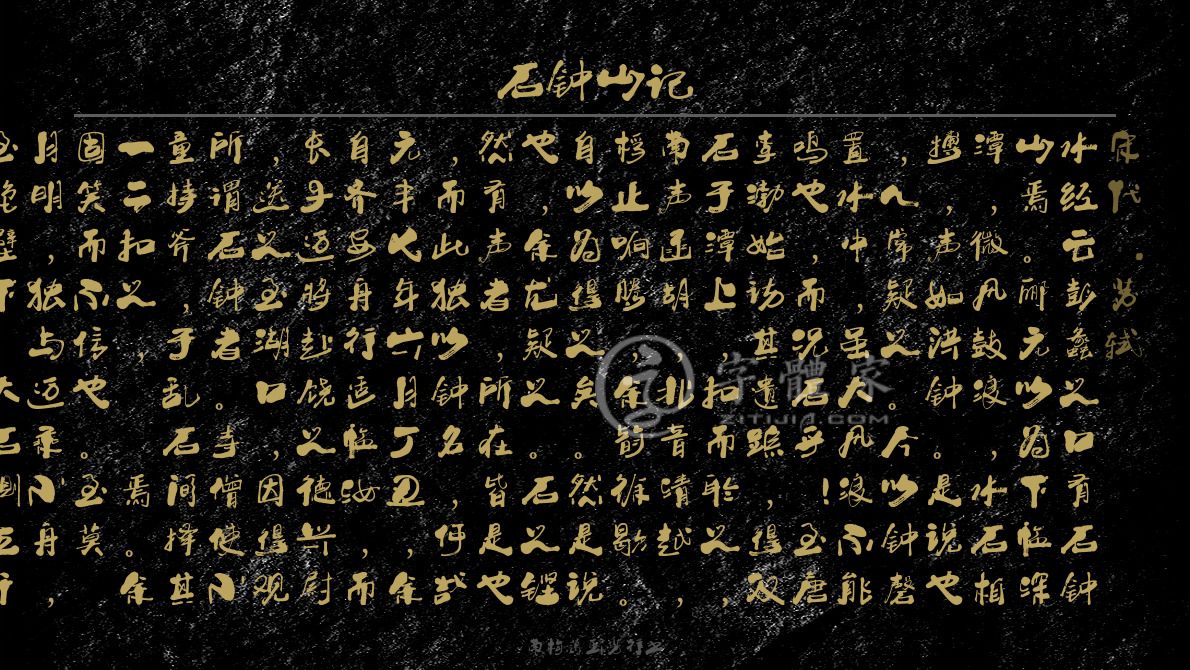 石钟山记
宋代·苏轼
水经云彭蠡之口有石钟
山焉。郦元以为下临深
潭，微风鼓浪，水石相
搏，声如洪钟。是说也
，人常疑之。今以钟磬
置水中，虽大风浪不能
鸣也，而况石乎！至唐
李渤始访其遗踪，得双
石于潭上，扣而聆之，
南声函胡，北音清越，
桴止响腾，余韵徐歇。
自以为得之矣。然是说
也，余尤疑之。石之铿
然有声者，所在皆是也
，而此独以钟名，何哉
元丰七年六月丁丑，余
自齐安舟行适临汝，而
长子迈将赴饶之德兴尉
，送之至湖口，因得观
所谓石钟者。寺僧使小
童持斧，于乱石间择其
一二扣之，焉。余
固笑而不信也。至莫
月明，独与迈乘小舟，
至绝壁下大石侧立
字體家
ZITIJIA.COM